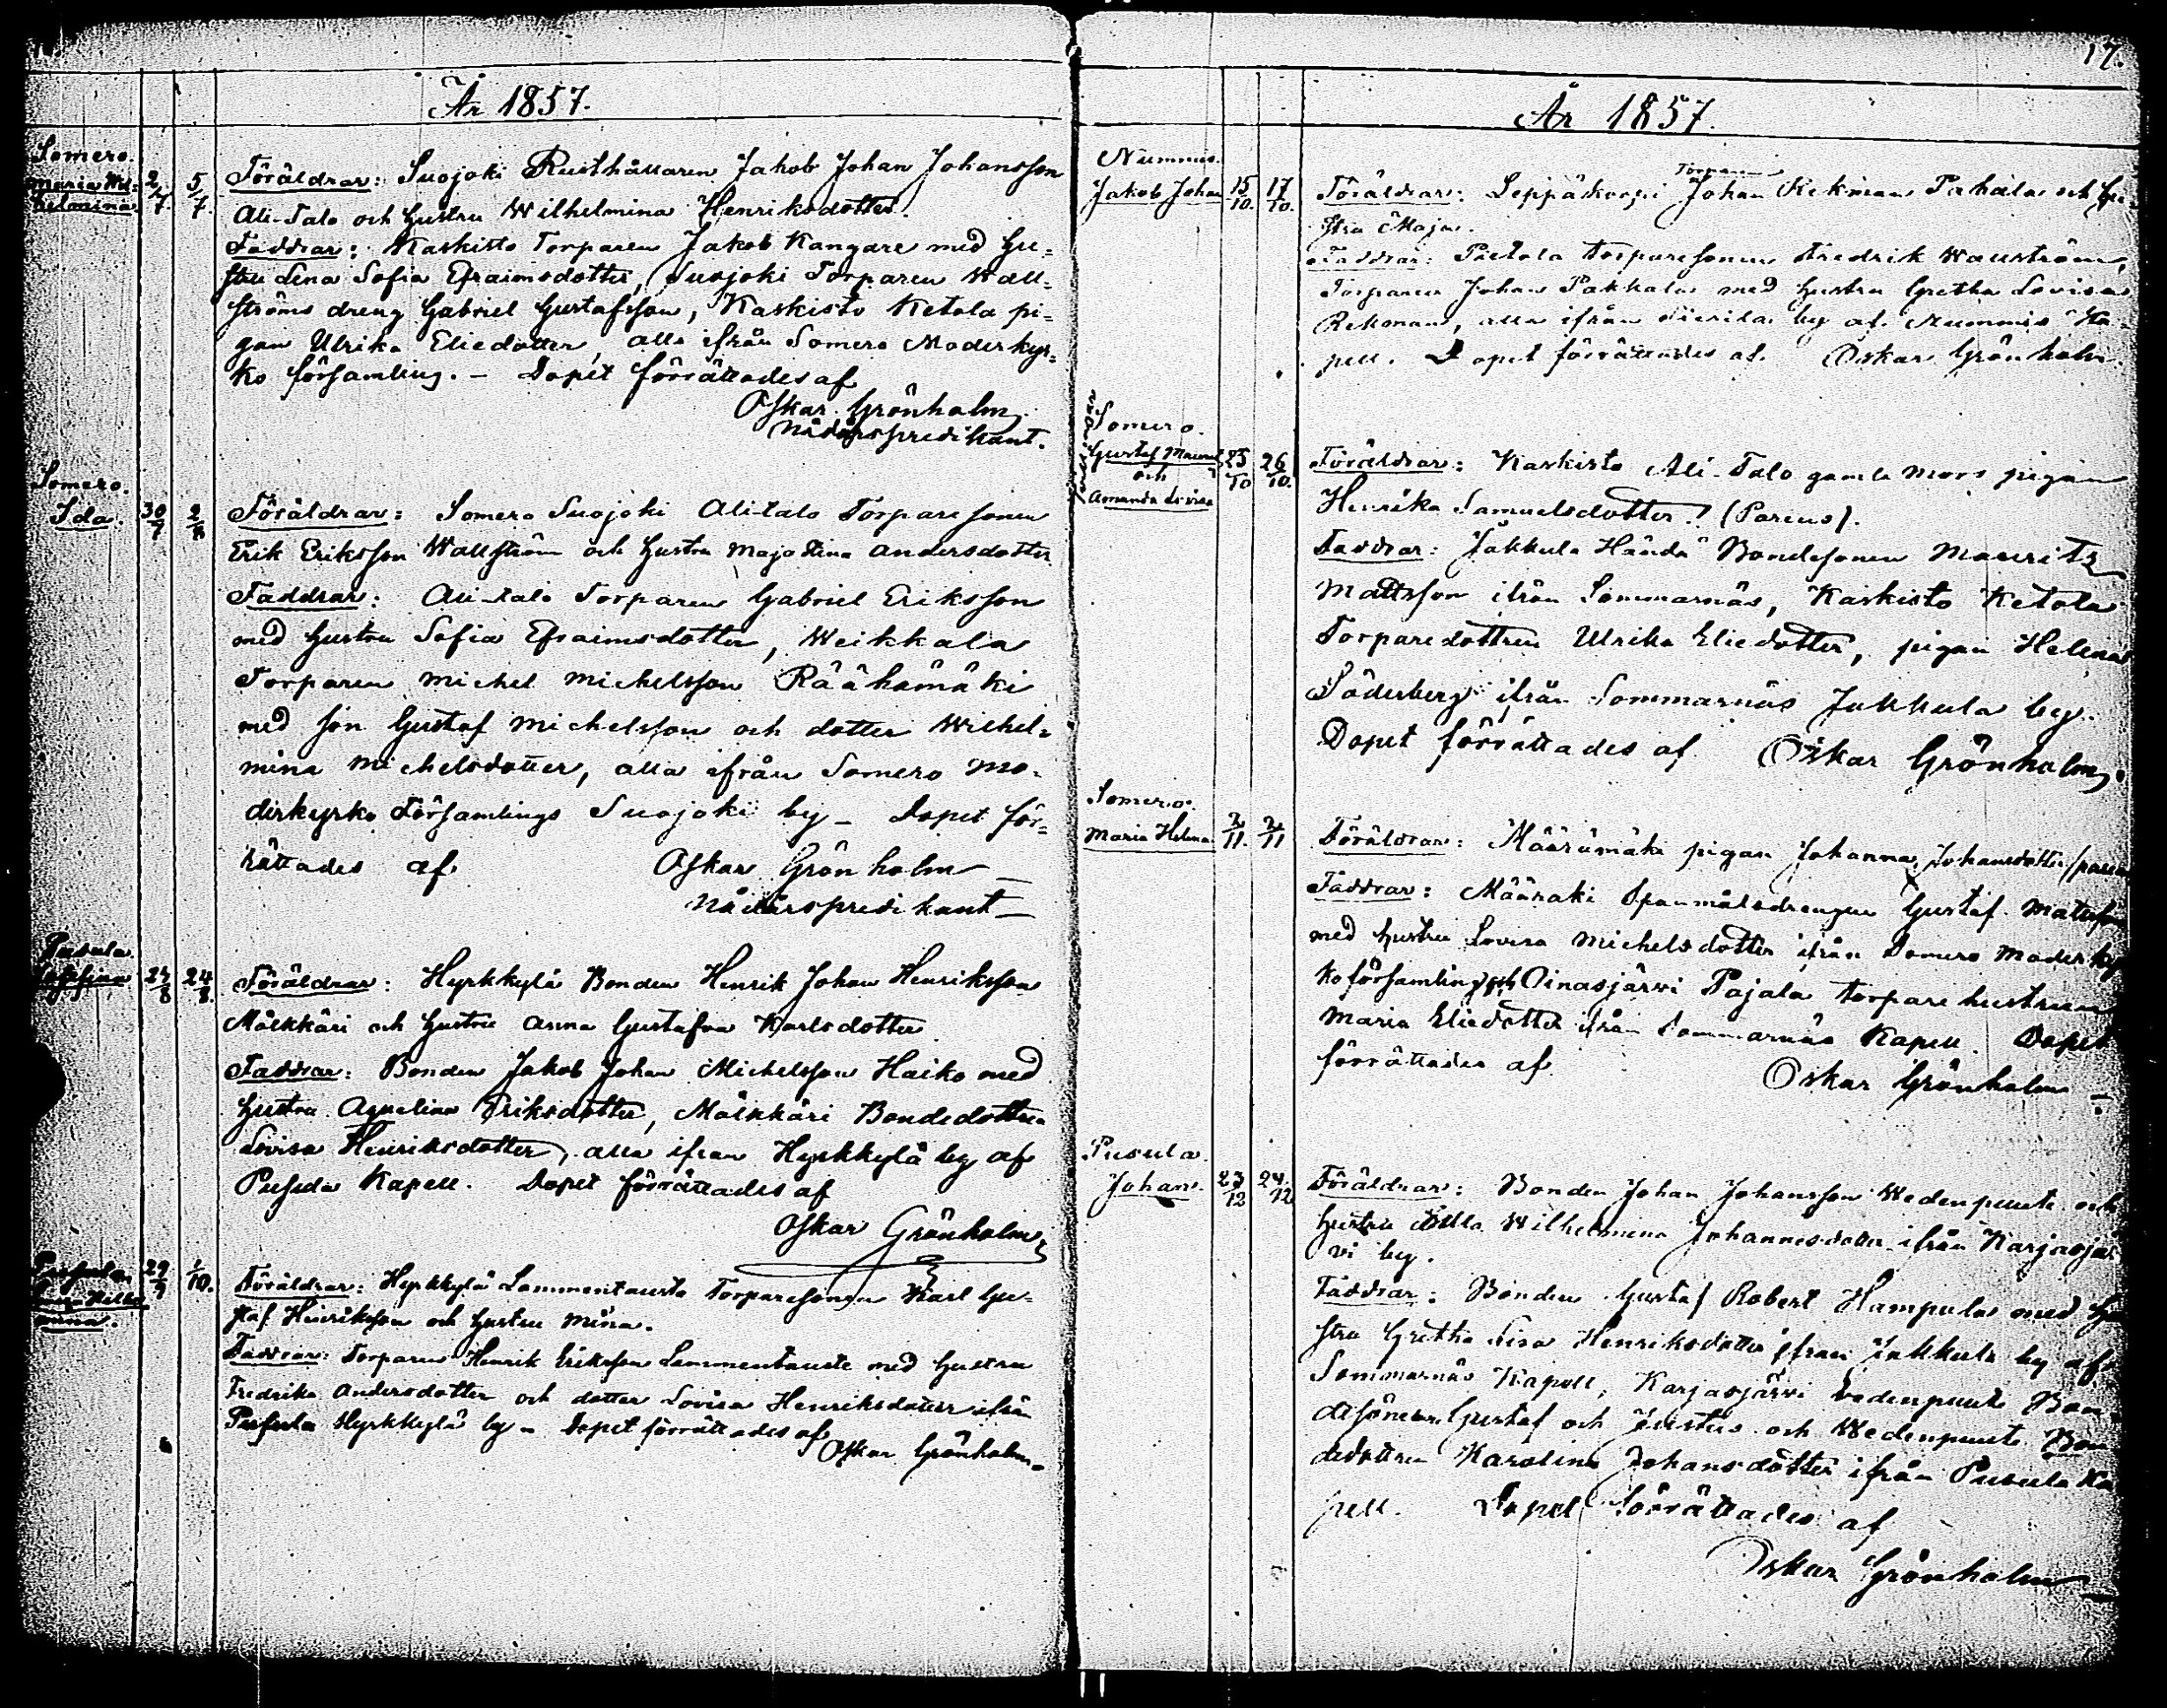 År 1857.
Somero.
Maria Wil=
helmina.
2/7.
5/7.
Föräldrar: Suojoki Rusthållaren Jakob Johan Johansson
Ali-Talo och hustru Wilhelmina Henriksdotter.
Faddrar: Kaskisto Torparen Jakob Kangare med hu=
stru Lena Sofia Efraimsdotter, Suojoki Torparen Wall=
ströms dreng Gabriel Gustafsson, Kaskisto Ketola pi=
gan Ulrika Eliedotter alla ifrån Somero Moderkyr=
ko församling. – Dopet förrättades af
Oskar Grönholm
Nådårspredikant.
Somero.
Ida.
30/7
2/8
Föräldrar: Somero Suojoki Alitalo Torparesonen
Erik Eriksson Wallström och hustru Maja Stina Andersdotter
Faddrar: Ali-talo Torparen Gabriel Eriksson
med hustru Sofia Efraimsdotter, Weikkala
Torparen Michel Michelsson Räähämäki
med son Gustaf Michelsson och dotter Wilhel=
mina Michelsdotter, alla ifrån Somero Mo=
derkyrko Församlings Suojoki by – Dopet för=
rättades af Oskar Grönholm –
Nådårspredikant –
Pusula
24/8.
Föräldrar: Hyrkkylä Bonden Henrik Johan Henriksson
Mälkkäri och hustru Anna Gustafva Karlsdotter
Faddrar: Bonden Jakob Johan Michelsson Haiko med
hustru Aqvelina Eriksdotter, Mälkkäri Bondedottren
Lovisa Henriksdotter, alla ifrån Hyrkkylä by af
Pusula Kapell. Dopet förrättades af
Oskar Grönholm
Pusula.
29/9
1/10.
Föräldrar: Hyrkkylä Lammentausta Torparesonen Karl Gu=
staf Henriksson och hustru Mina.
Faddrar: Torparen Henrik Eriksson Lammentausta med hustru
Fredrika Andersdotter och dotter Lovisa Henriksdotter ifrån
Pusula Hyrkkylä by – Dopet förrättades af
Oskar Grönholm –
17.
År 1857.
Nummis.
Jakob Johan
15/10.
17/10.
Torparen
Föräldrar: Leppäkorpi Johan Rekman Pahala och hu=
stru Maja.
Faddrar: Pietola Torparesonen Fredrik Wauström,
Torparen Johan Pakkala med hustru Gretha Lovisa
Rekman, alla ifrån by af Nummis Ka=
pell. Dopet förrättades af Oskar Grönholm.
Somero.
Gustaf Maurits
och
Amanda Lovisa
23/10
26/10.
Föräldrar: Kaskisto Ali-Talo gamla Mors pigan
Henrika Samuelsdotter! (Parens).
Faddrar: Jakkula Händä Bondesonen Maurits
Mattsson ifrån Sommarnäs, Kaskisto Ketola
Torparedottren Ulrika Eliedotter, pigan Helena
Söderberg ifrån Sommarnäs Jakkula by.
Dopet förrättades af Oskar Grönholm.
Somero.
Maria Helena
2/11.
2/11
Föräldrar: Määrämäki pigan Johanna Johansdotter (parens
Faddrar: Spannmålsdrengen Gustaf Matsson
med hustru Lovisa Michelsdotter ifrån Somero Moderkyr
ko församling och Oinasjärvi Pajala torparehustrun
Maria Eliedotter ifrån Sommarnäs Kapell. Dopet
förrättades af Oskar Grönholm –
Pusula.
Johan.
23/12
24/12
Föräldrar: Bonden Johan Johansson Wedenpuute och
hustru Ulla Wilhelmina Johannesdotter ifrån Karjasjär
vi by.
Faddrar: Bonden Gustaf Robert Hampula med hu
stru Gretha Lisa Henriksdotter ifrån Jakkula by af
Sommarnäs Kapell, Karjasjärvi Vedenpuute Bon=
desönerne Gustaf och Justus och Wedenpuute Bon
dedottren Karolina Johansdotter ifrån Pusula Ka
pell. Dopet förrättades af
Oskar Grönholm –